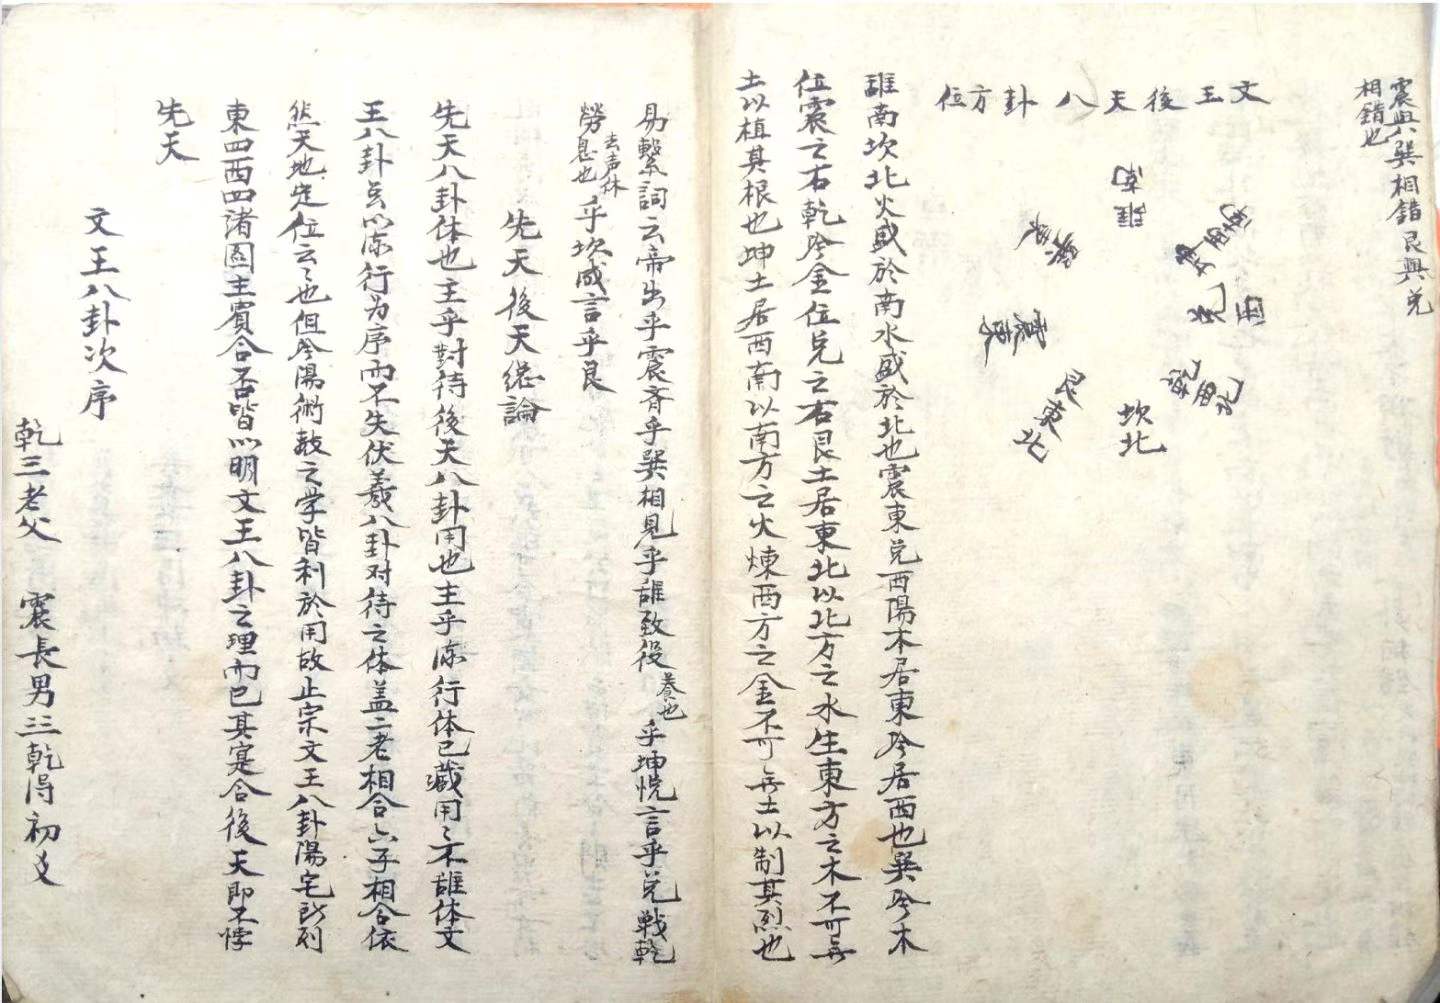 震與巽相錯艮與兌
相錯也
文王後天八卦方位
離南
坤西南
兌西
乾西北
坎北
艮東北
震東
巽東
離南坎北火盛於南水盛於北也震東兌西陽木居東阴居西也巽阴木
位震之右乾阴金位兌之右艮土居東北以北方之水生東方之木不可無
土以植其根也坤土居西南以南方之火煉西方之金不可無土以制其烈也
易繫詞云帝出乎震齐乎巽相見乎離致役養也乎坤悅言乎兌戰乾
勞去声休息也乎坎成言乎艮
先天後天總論
先天八卦体也主乎對待後天八卦用也主乎流行体已藏用〻不離体文
王八卦玄以流行为序而不失伏羲八卦对待之体盖二老相合六子相合依
然天地定位云〻也但阴陽術数之学皆利於用故止宗文王八卦陽宅所列
東四西四諸圖主賓合否皆以明文王八卦之理而已其寔合後天即不悖
先天
文王八卦次序
乾三老父 震長男三乾得初爻